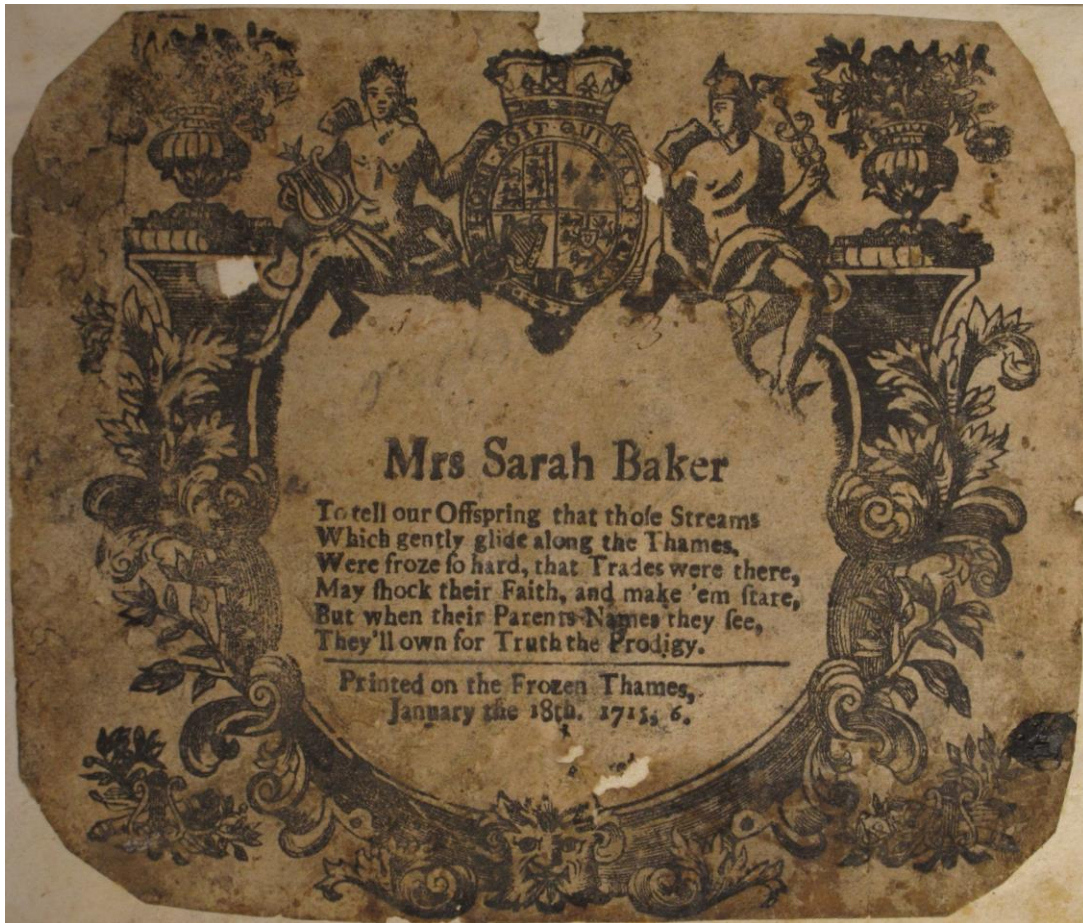 HONI · SOIT · QUI · MAL · Y · PENSE
Mrs Sarah Baker
To tell our Offspring that thoſe Streams
Which gently glide along the Thames,
Were froze ſo hard, that Trades were there,
May ſhock their Faith, and make 'em ſtare,
But when their Parents Names they ſee,
They'll own for Truth the Prodigy.
Printed on the Frozen Thames,
January the 18th. 1715, 6.